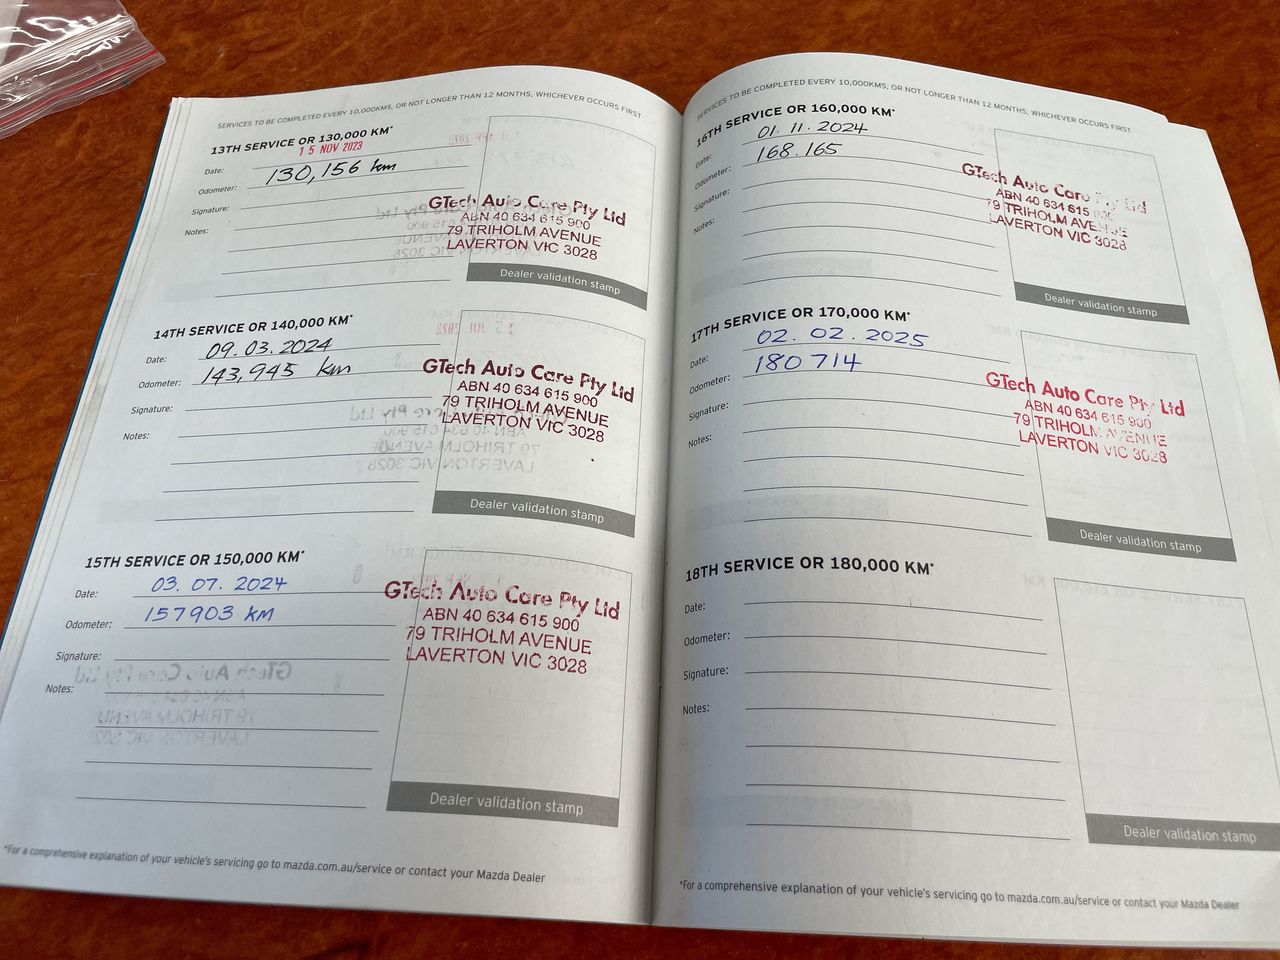 SERVICES TO BE COMPLETED EVERY 10,000KMS, OR NOT LONGER THAN 12 MONTHS, WHICHEVER OCCURS FIRST
13TH SERVICE OR 130,000 KM*
Date: 15 NOV 2023
Odometer: 130,156 km
Signature:
Notes:
GTech Auto Care Pty Ltd
ABN 40 634 615 900
79 TRIHOLM AVENUE
LAVERTON VIC 3028
Dealer validation stamp
14TH SERVICE OR 140,000 KM*
Date: 09.03.2024
Odometer: 143,945 km
Signature:
Notes:
GTech Auto Care Pty Ltd
ABN 40 634 615 900
79 TRIHOLM AVENUE
LAVERTON VIC 3028
Dealer validation stamp
15TH SERVICE OR 150,000 KM*
Date: 03.07.2024
Odometer: 157903 KM
Signature:
Notes:
GTech Auto Care Pty Ltd
ABN 40 634 615 900
79 TRIHOLM AVENUE
LAVERTON VIC 3028
Dealer validation stamp
*For a comprehensive explanation of your vehicle's servicing go to mazda.com.au/service or contact your Mazda Dealer
SERVICES TO BE COMPLETED EVERY 10,000KMS, OR NOT LONGER THAN 12 MONTHS, WHICHEVER OCCURS FIRST
16TH SERVICE OR 160,000 KM*
Date: 01.11.2024
Odometer: 168.165
Signature:
Notes:
GTech Auto Care Pty Ltd
ABN 40 634 615 900
79 TRIHOLM AVENUE
LAVERTON VIC 3028
Dealer validation stamp
17TH SERVICE OR 170,000 KM*
Date: 02.02.2025
Odometer: 180 714
Signature:
Notes:
GTech Auto Care Pty Ltd
ABN 40 634 615 900
79 TRIHOLM AVENUE
LAVERTON VIC 3028
Dealer validation stamp
18TH SERVICE OR 180,000 KM*
Date:
Odometer:
Signature:
Notes:
Dealer validation stamp
*For a comprehensive explanation of your vehicle's servicing go to mazda.com.au/service or contact your Mazda Dealer